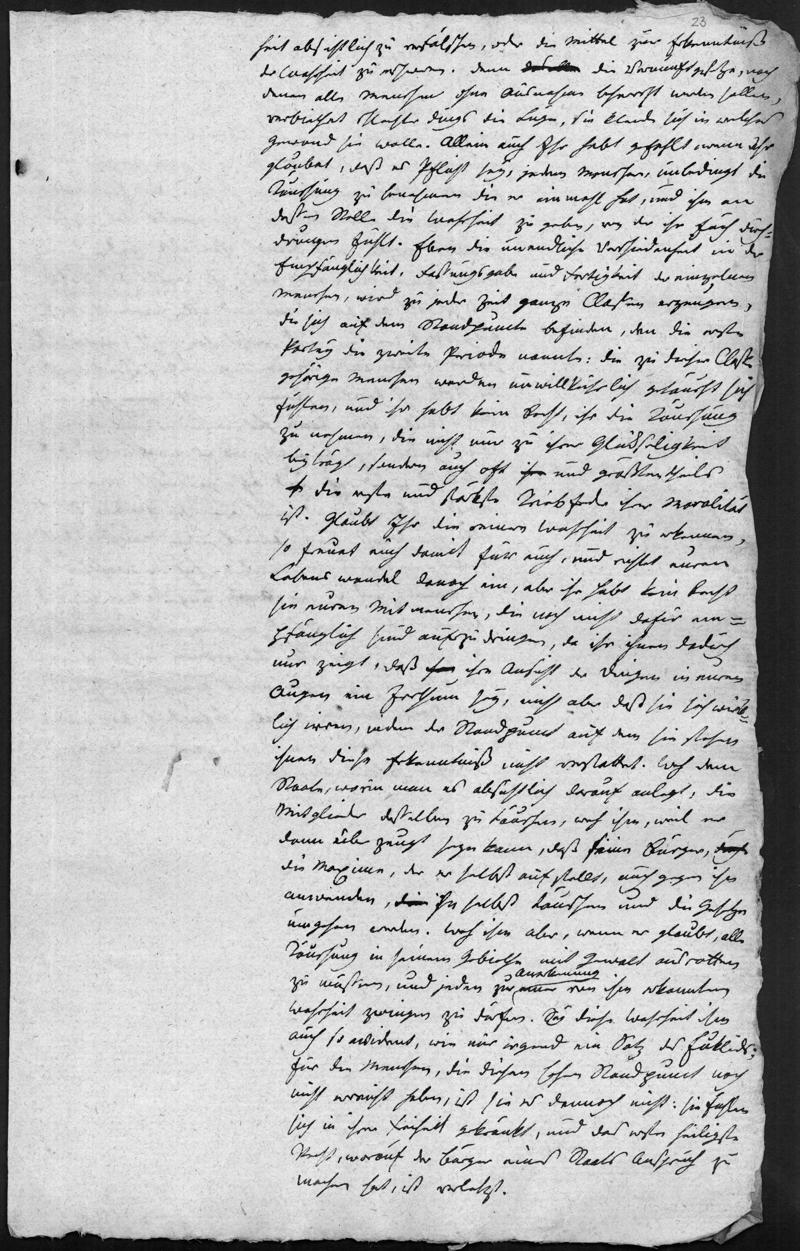 23
heit absichtlich zu verfälschen, oder die Mittel zur Erkenntniß
der Wahrheit zu erschweren. denn die Vernunftgesetze, nach
denen alle Menschen ohne Ausnahme beherrscht werden sollen,
verbiethet schlechterdings die Lüge, sie kleide sich in welches
Gewand sie wolle. Allein auch Ihr habt gefehlt wenn Ihr
glaubet, daß es Pflicht sey, jedem Menschen, unbedingt die
Täuschung zu benehmen die er einmahl hat, und ihm an
dessen Stelle die Wahrheit zu geben, von der ihr Euch durch-
drungen fühlt. Eben die unendliche Verschiedenheit in der
Empfänglichkeit, Fassungsgabe und Fertigkeit der einzelnen
Menschen, wird zu jeder Zeit ganze Classen erzeugen,
die sich auf dem Standpuncte befinden, den die erste
Partey die zweite Periode nannte: die zu dieser Classe
gehörige Menschen werden unwillkührlich getäuscht sich
fühlen, und ihr habt kein Recht, ihr die Täuschung
zu nehmen, die nicht nur zu ihrer Glükseligkeit
beyträgt, sondern auch oft und größtentheils
die erste und stärkste Triebfeder ihrer Moralität
ist. Glaubt Ihr die reinere Wahrheit zu erkennen,
so freuet euch damit für euch, und richtet euren
Lebenswandel danach ein, aber ihr habt kein Recht
sie euren Mitmenschen, die noch nicht dafür em-
pfänglich sind aufzudringen, da ihr ihnen dadurch
nur zeigt, daß ihre Ansicht der Dinge in euren
Augen ein Irrthum sey, nicht aber daß sie sich wirk-
lich irren, indem der Standpunct auf dem sie stehen
ihnen diese Erkenntniß nicht verstattet. Weh dem
Staate, worin man es absichtlich darauf anlegt, die
Mitglieder desselben zu täuschen, weh ihm, weil er
dann überzeugt seyn kann, daß seine Bürger,
die Maxime, die er selbst aufstellt, auch gegen ihn
anwenden, ihn selbst täuschen und die Gesetze
umgehen werden. Weh ihm aber, wenn er glaubt, alle
Täuschung in seinem Gebiethe mit Gewalt ausrotten
zu müssen, und jeden zur Anerkennung von ihm erkannten
Wahrheit zwingen zu dürfen. Sey diese Wahrheit ihm
auch so evident, wie nur irgend ein Satz des Euklids;
für den Menschen, die diesen hohen Standpunct noch
nicht erreicht haben, ist sie es dennoch nicht: sie fühlen
sich in ihrer Freiheit gekränkt, und das erste heiligste
Recht, worauf der Bürger eines Staats Anspruch zu
machen hat, ist verletzt.